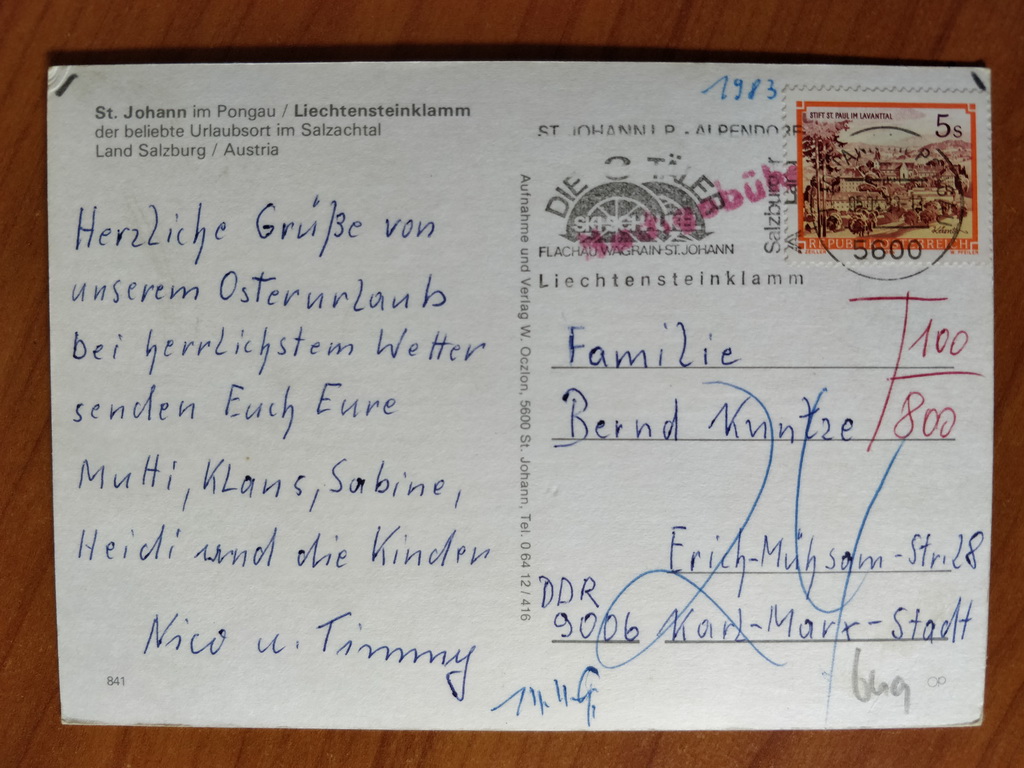 St. Johann im Pongau / Liechtensteinklamm
der beliebte Urlaubsort im Salzachtal
Land Salzburg / Austria
Herzliche Grüße von
unserem Osterurlaub
bei herrlichstem Wetter
senden Euch Eure
Mutti, Klaus, Sabine,
Heidi und die Kinder
Nico u. Timmy
841
Aufnahme und Verlag W. Oczlon, 5600 St. Johann, Tel. 0 64 12 / 416
1983
ST. JOHANN I. P. - ALPENDORF
DIE 3 TÄLER
FLACHAU WAGRAIN-ST. JOHANN
Liechtensteinklamm
Salzburger
Land
STIFT ST. PAUL IM LAVANTTAL
5 S
REPUBLIK ÖSTERREICH
5600
T 100
800
Familie
Bernd Kuntze
Erich-Mühsam-Str. 28
DDR
9006 Karl-Marx-Stadt
24